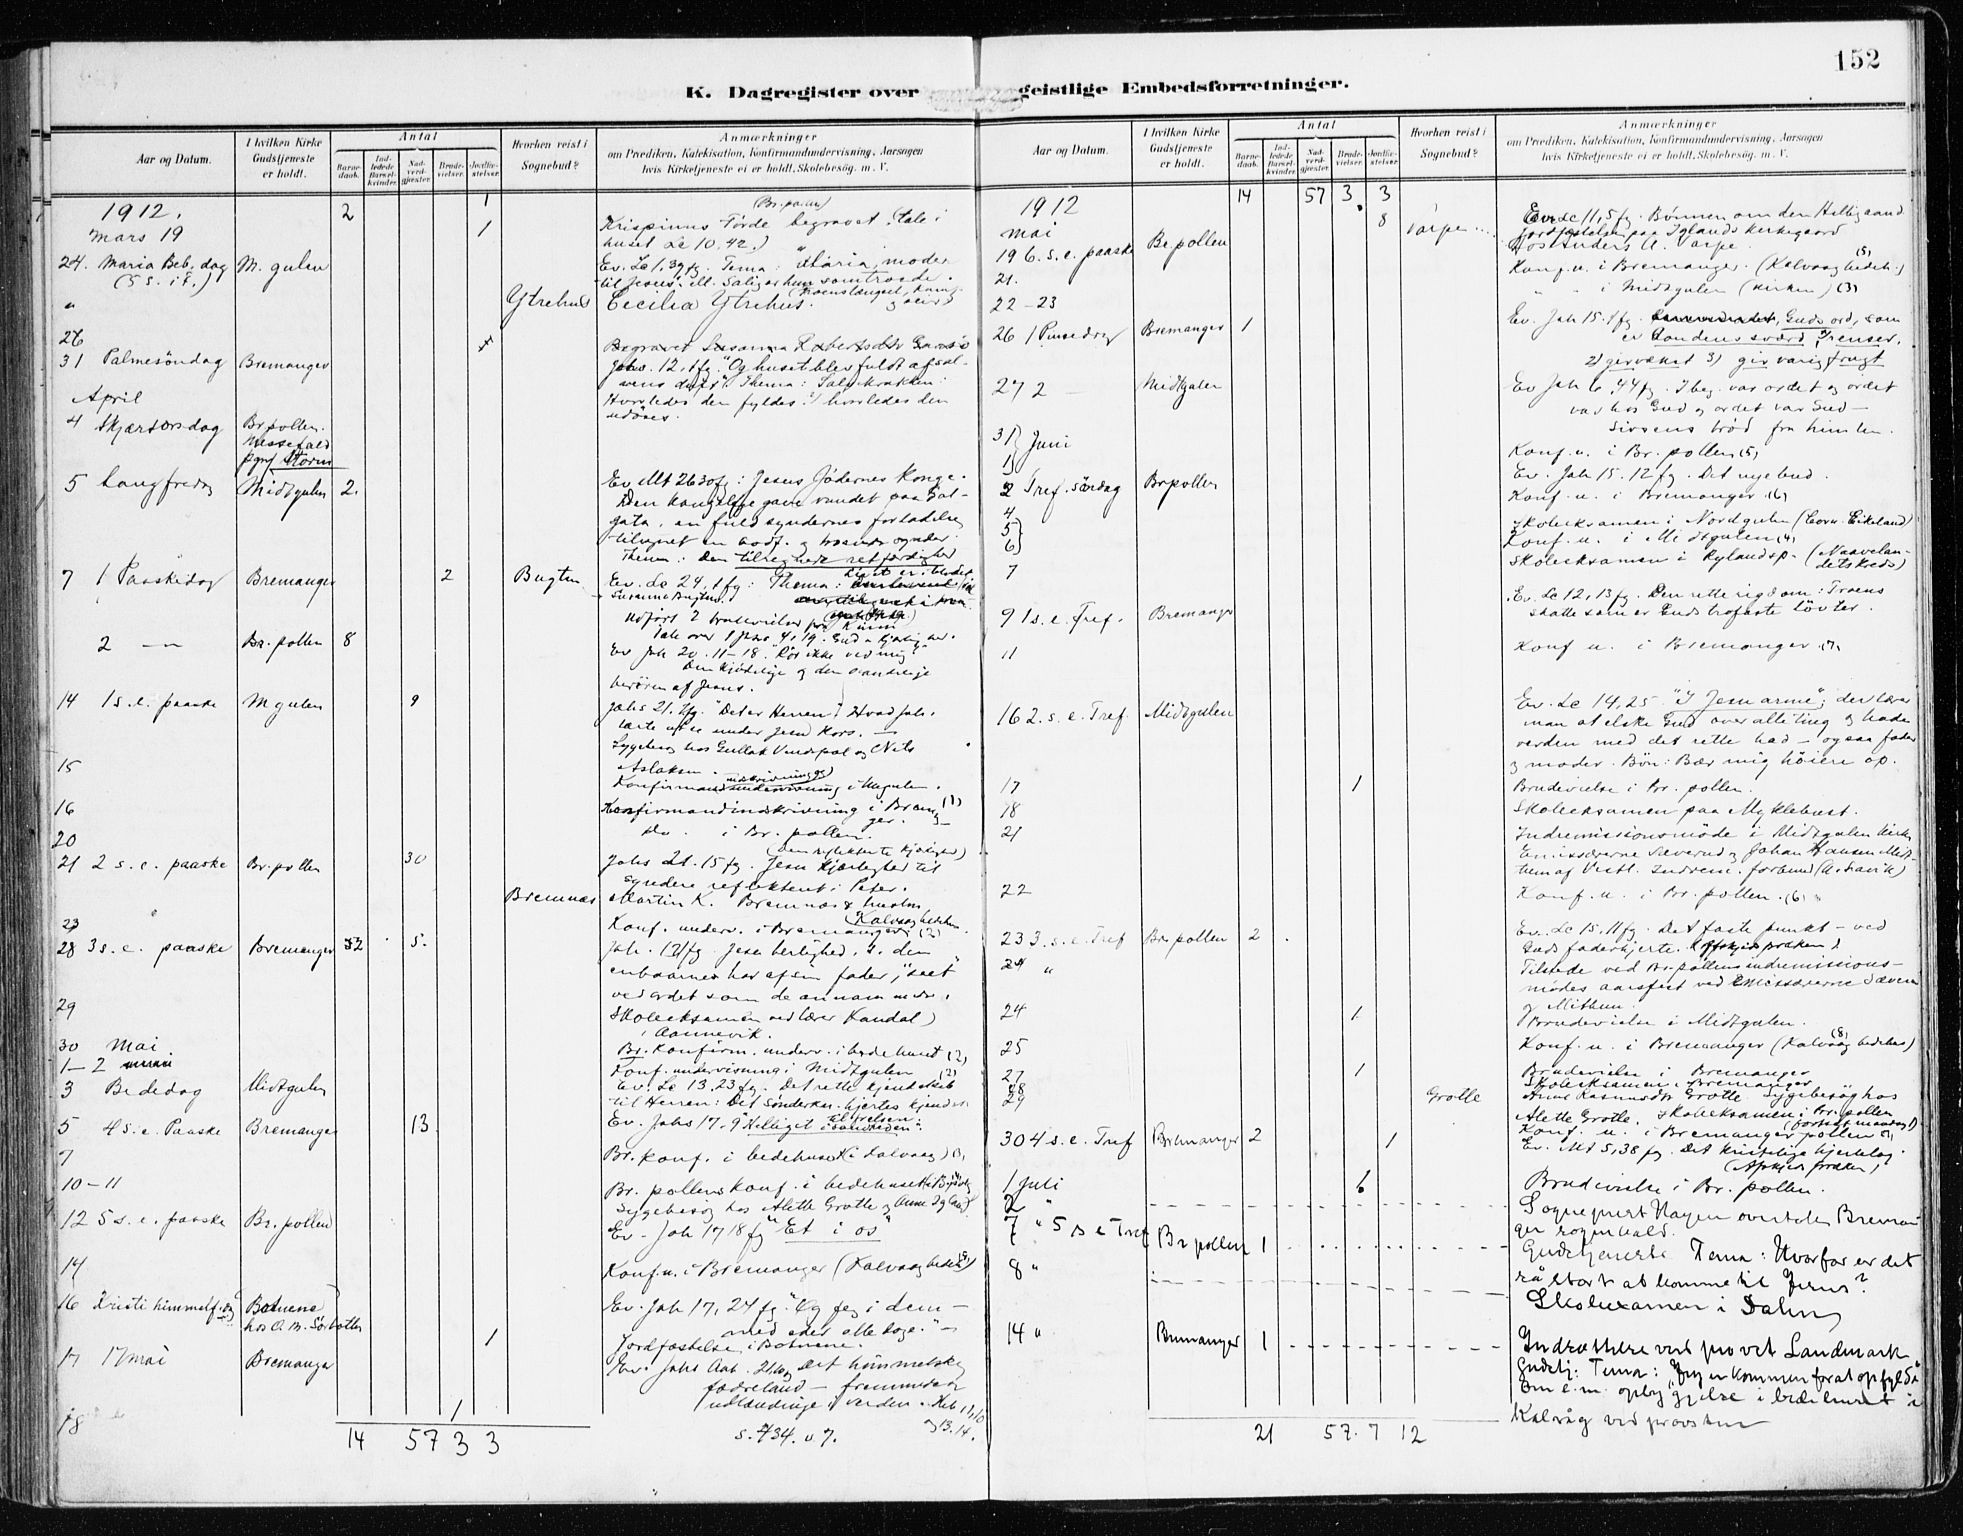 152
K. Dagregister over geistlige Embedsforretninger.
Aar og Datum.
I hvilken Kirke Gudstjeneste er holdt.
Antal
Barne-daab.
Ind-ledede Barsel-kvinder.
Nad-verd-gjester.
Brude-vielser.
Jordfæ-stelser.
Hvorhen reist i Sognebud?
Anmærkninger
om Prædiken, Katekisation, Konfirmandundervisning, Aarsagen
hvis Kirketjeneste ei er holdt, Skolebesøg. m. V.
1912. 2 1 (Br.pollen)
Mars 19 1 Krispinus Förde begravet. (tale i
huset Lc 10.42.)
24. Maria Beb. dag M. gulen Ev. Lc 1,39fg. Tema: "Maria, moder
(5 s. i f.) til Jesus".
" Ytrehus Cecilia Ytrehus.
26 Begravet Susanna
31 Palmesöndag Bremanger Johs. 12.1fg. "Og huset blev fuldt af sal-
vens duft" Thema: Salvekrukken:
Hvorledes den fyldes 2) hvorledes den
udöses.
April
4 Skjærtorsdag Br pollen.
Messefald
pgrf Storm
5 Langfredag Midtgulen 2. Ev Mt 26 30fg: Jesus Jödernes Konge.
vundet paa Gol-
gata, en fuld syndernes forladelse
Thema: Den tilregnede retfærdighed
7 1 Paaskedag Bremanger 2 Bugten Ev. Lc 24.1fg: Thema:
Susanne Bugten.
Udfört 2 brudevielser
Tale over 1 Johs 4,19: Gud
2 — " Br. pollen 8 Ev Joh 20.11-18. "Rör ikke ved mig"
Den kjödelige og den aandelige
berören af Jesus.
14 1 s. e. paaske M gulen 9 Johs 21.1fg. "Det er Herren". Hvad Joh.
lærte under Jesu Kors. —
Sygebesög hos Gullak Vindspol og Nils
Aslaksen.
15 Konfirmandindskrivning i M.gulen.
16 Konfirmandindskrivning i Breman- (1)
ger.
20 do. i Br. pollen.
21 2 s. e. paaske Br. pollen 30 Johs 21.15fg. Jesu kjærlighed til
syndere reflektert i Peter.
Bremnes Martin K. Bremnes & hustru
23 Konf. underv. i Bremanger (2)
28 3 s. e. paaske Bremanger 2 5. Joh. 1. Jesu herlighed, s. den
enbaarne har af sin fader, "seet"
ved ordet som de annammede.
29 Skoleeksamen ved lærer Kandal
i Aannevik.
30 Mai Br. Konfirm. underv. i bedehuset (2)
1-2 Konf. undervisning i Midtgulen (2)
3 Bededag Midtgulen Ev. Lc 13.23fg. Det rette kjendskab
til Herren: Det sönderkn. hjertes kjendsk.
5 4 s. e. Paaske Bremanger 13. Ev. Johs 17.9 "Helliget i sandheden".
7 Br. konf. i bedehuset (i Kalvaag)
10-11 Br. pollens konf. i bedehuset
Sygebesög hos Alette Grotle og Anne Igland
12 5 s. e. paaske Br. pollen Ev. Joh 17 18fg "Et i os"
14 Konf. u. i Bremanger (Kalvaag bedeh)
16 Kristi himmelf. dag Botnene Ev. Joh 17, 24fg. "Og jeg i dem —
hos O. M. Sörbotten med eder alle dage." —
1 Jordfæstelse i Botnene.
17 17 mai Bremanger Ev. Johs Aab. 21. Det himmelske
fædreland — fremmede og
udlændinge i verden. Heb 11,10
og 13.14.
18 1
14 57 3 3 s. 434. v. 7.
Aar og Datum.
I hvilken Kirke Gudstjeneste er holdt.
Antal
Barne-daab.
Ind-ledede Barsel-kvinder.
Nad-verd-gjester.
Brude-vielser.
Jordfæ-stelser.
Hvorhen reist i Sognebud?
Anmærkninger
om Prædiken, Katekisation, Konfirmandundervisning, Aarsagen
hvis Kirketjeneste ei er holdt, Skolebesøg. m. V.
1912 14 57 3 3
mai 8 Varpe Ev. Lc 11,5fg. Bönnen om den Helligaand
Jordfæstelser paa Iglands kirkegaard
19 6. s. e. paaske Br pollen Hos Anders A. Varpe.
21. Konf. u. i Bremanger. (Kalvaag bedeh.) (5)
22-23 " " i Midtgulen (kirken) (3)
26 1 Pinsedag Bremanger 1 Ev. Joh 15.1fg. Guds ord, som
er Aandens sværd 1) renser,
2) gir vækst 3) gir varig frugt
27 2 — Midtgulen Ev Joh 6,44fg. I beg. var ordet og ordet
var hos Gud og ordet var Gud —
Livsens bröd fra himlen.
31 Juni
1 Konf. u. i Br. pollen (5)
2 Tref. söndag Br pollen Ev. Joh 15.12fg. Det nye bud.
4 Konf. u. i Bremanger (6)
5 Skoleeksamen i Nordgulen (Corn. Eikeland)
6 Konf. u. i Midtgulen (4)
7 Skoleeksamen i Rylandsp. (Naavelan-
detskreds)
9 1 s. e. Tref. Bremanger Ev. Lc 12,13fg. Den rette rigdom: Troens
skatte som er Guds trofaste löfter.
11 Konf u. i Bremanger. (7)
16 2. s. e. Tref. Midtgulen Ev. Lc 14,25. "I Jesu arme", der lærer
man at elske Gud over alle ting og hade
verden med det rette had — ogsaa fader
og moder. Bön: Bær mig höiere op.
17 1 Brudevielse i Br. pollen.
18 Skoleeksamen paa Myklebust.
21 Indremissionsmöde i Midtgulen kirke
Emissærerne Sæverud og Johan Hansen Mit-
hun af Vestl. indrem. forbund
22 Konf. u. i Br. pollen. (6)
23 3. s. e. Tref Br. pollen 2 Ev. Lc 15.11fg. Det faste punkt — ved
Guds faderhjerte.
24 " Tilstede ved Br. pollens indremissions-
mödes aarsfest ved Emissærerne Sæverud
og Mithun.
24 1 Brudevielse i Midtgulen.
25 Konf. u. i Bremanger (Kalvaag bedehus) (8)
27 1 Brudevielse i Bremanger
28 Skoleeksamen i Bremanger
29 Grotle Anne Rasmusdtr Grotle. Sygebesög hos
Alette Grotle. Skoleeksamen i Br. pollen
30 4 s. e. Tref Bremanger 2 1 Ev. Mt 5,38fg. Det kristelige hjertelag.
(Afskedspræken)
1 Juli 6 Brudevielse i Br. pollen.
2 " Sogneprest Hagen overtok Breman-
ger sognekald.
7 " 5 S e Tref Br pollen 1 Gudstjeneste Tema: Hvorfor er det
så stort at komme til Jesus?
8 " Skoleexamen i Dalen
14 " Bremanger 1 Indsættelse ved provst Landmark
Gudstj: Tema: "Jeg er kommen for at opfylde"
Em e.m. opbyggelse i bedehuset i
Kalvåg ved provsten
21 57. 7 12